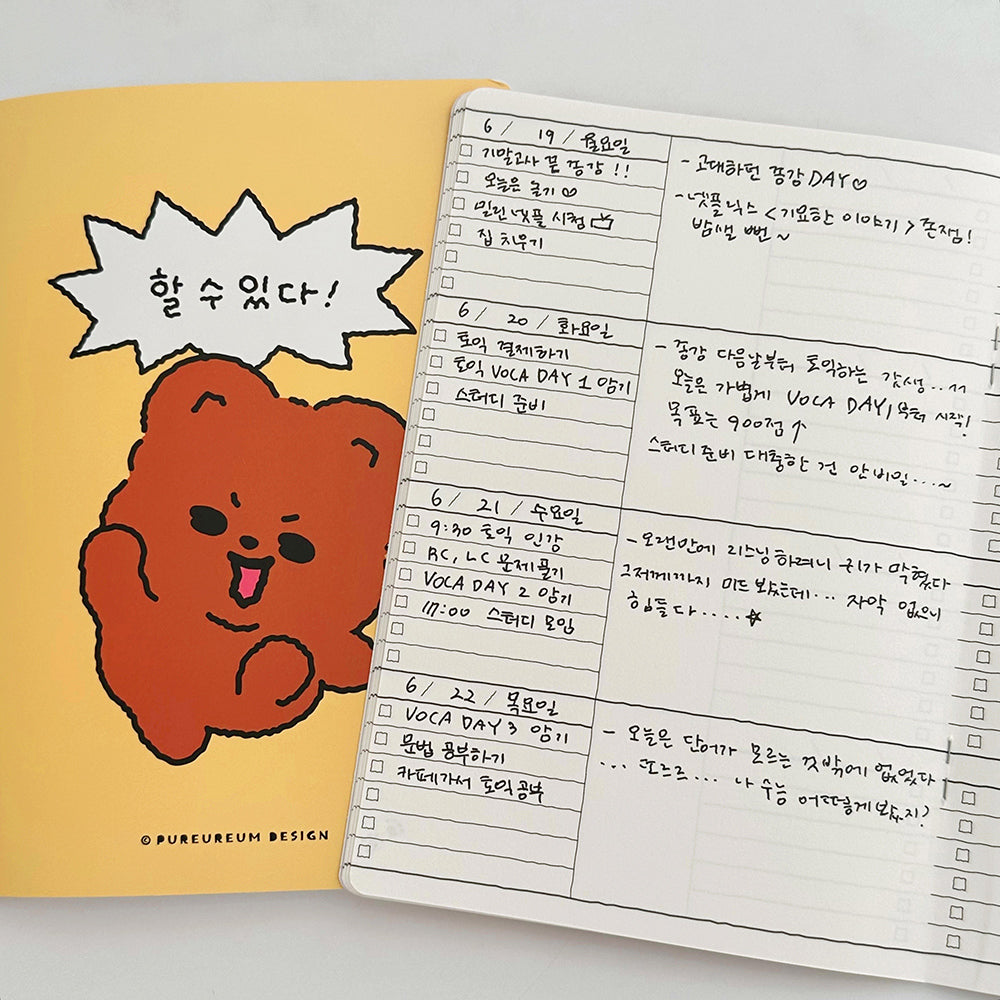 할 수 있다!
© PUREUREUM DESIGN
6 / 19 / 월요일
기말고사 끝 종강 !!
오늘은 놀기 ♡
밀린 넷플 시청
집 치우기
- 고대하던 종강 DAY ♡
- 넷플릭스 <기묘한 이야기> 존잼!
밤샐 뻔 ~
6 / 20 / 화요일
토익 결제하기
토익 VOCA DAY 1 암기
스터디 준비
- 종강 다음날부터 토익하는 갓생..ㅋㅋ
오늘은 가볍게 VOCA DAY1부터 시작!
목표는 900점↑
스터디 준비 대충한 건 안 비밀...~
6 / 21 / 수요일
9:30 토익 인강
RC, LC 문제풀기
VOCA DAY 2 암기
17:00 스터디 모임
- 오랜만에 리스닝 하려니 귀가 막혔다
그저께까지 미드 봤는데... 자막 없으니
힘들다....☆
6 / 22 / 목요일
VOCA DAY 3 암기
문법 공부하기
카페가서 토익공부
- 오늘은 단어가 모르는 것밖에 없었다
... 또르르... 나 수능 어떠렇게봤지?